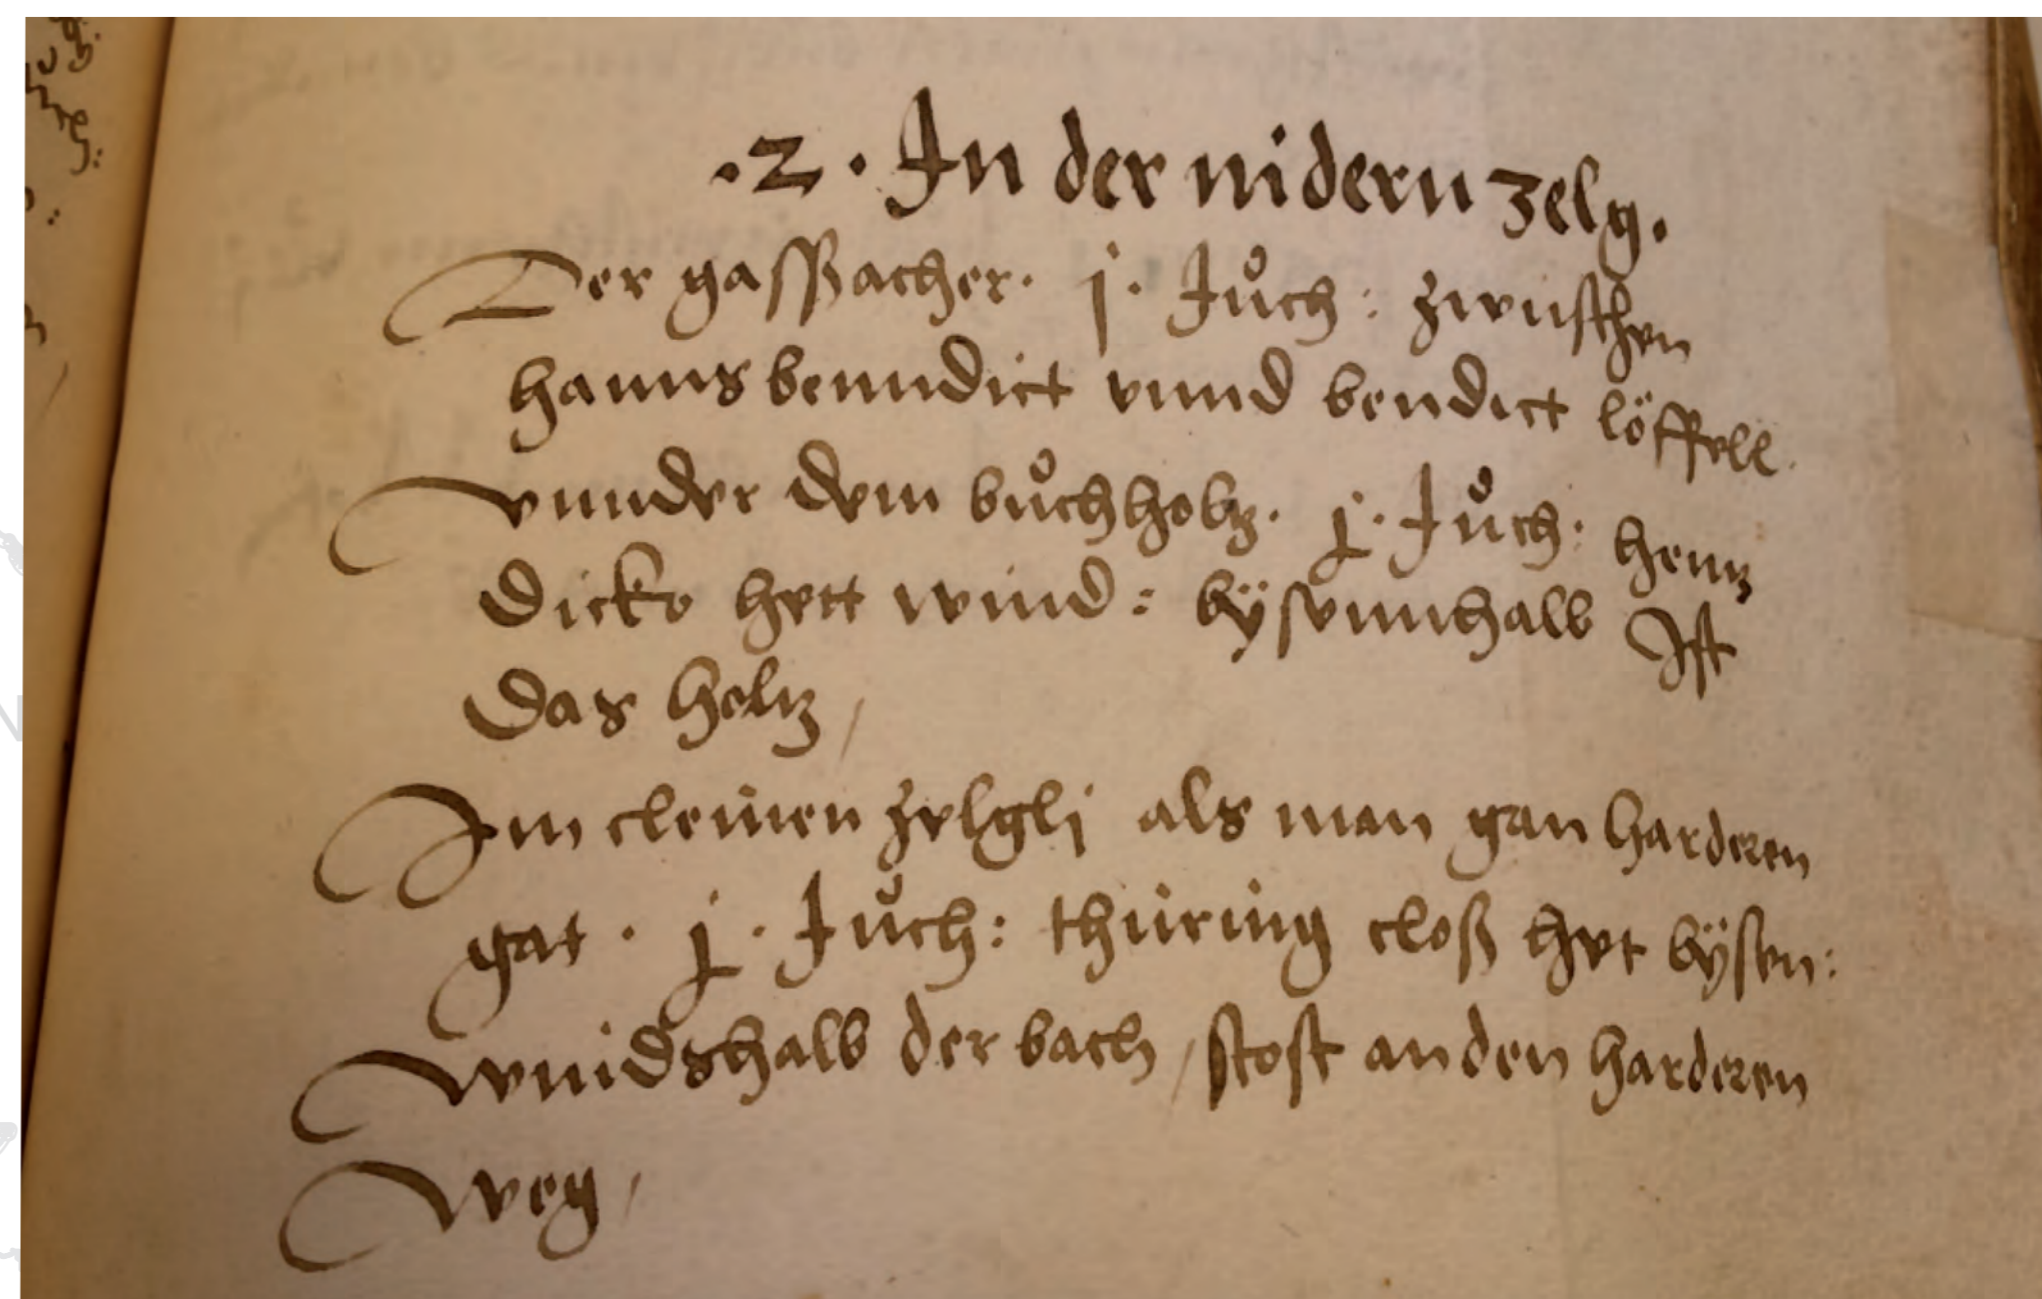 .2. In der nidern zelg.
Der gassacher. j. Jůch: zwuschen
hanns benndict vnnd bendict löffell.
vnnder dem bůchholtz. j. Jůch: hentz
Dicko hett wind: bÿsennhalb Ist
Das holtz /
Im cleinen zelgli als man gan harderen
gat. j. Jůch: thüring cloß het bÿsen:
windshalb der bach / stost an den harderen
weg /